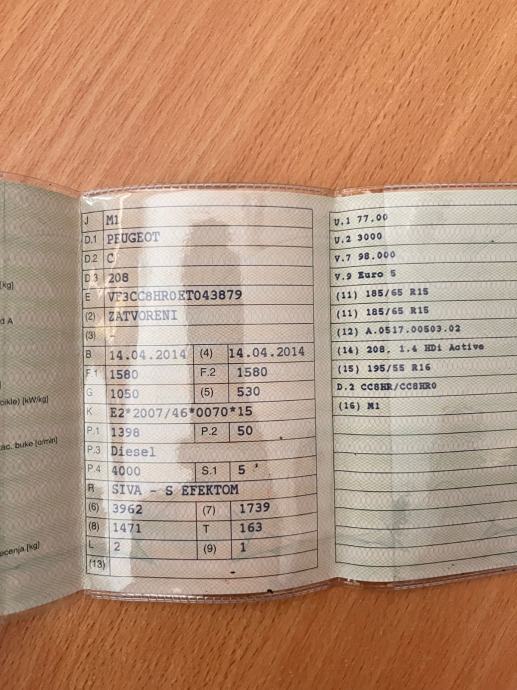 [kg]
d A
cikle) [kW/kg]
ac. buke [o/min]
ecenja [kg]
J M1
D.1 PEUGEOT
D.2 C
D.3 208
E VF3CC8HR0ET043879
(2) ZATVORENI
(3) -
B 14.04.2014 (4) 14.04.2014
F.1 1580 F.2 1580
G 1050 (5) 530
K E2*2007/46*0070*15
P.1 1398 P.2 50
P.3 Diesel
P.4 4000 S.1 5
R SIVA - S EFEKTOM
(6) 3962 (7) 1739
(8) 1471 T 163
L 2 (9) 1
(13)
U.1 77.00
U.2 3000
V.7 98.000
V.9 Euro 5
(11) 185/65 R15
(11) 185/65 R15
(12) A.0517.00503.02
(14) 208, 1.4 HDi Active
(15) 195/55 R16
D.2 CC8HR/CC8HR0
(16) M1